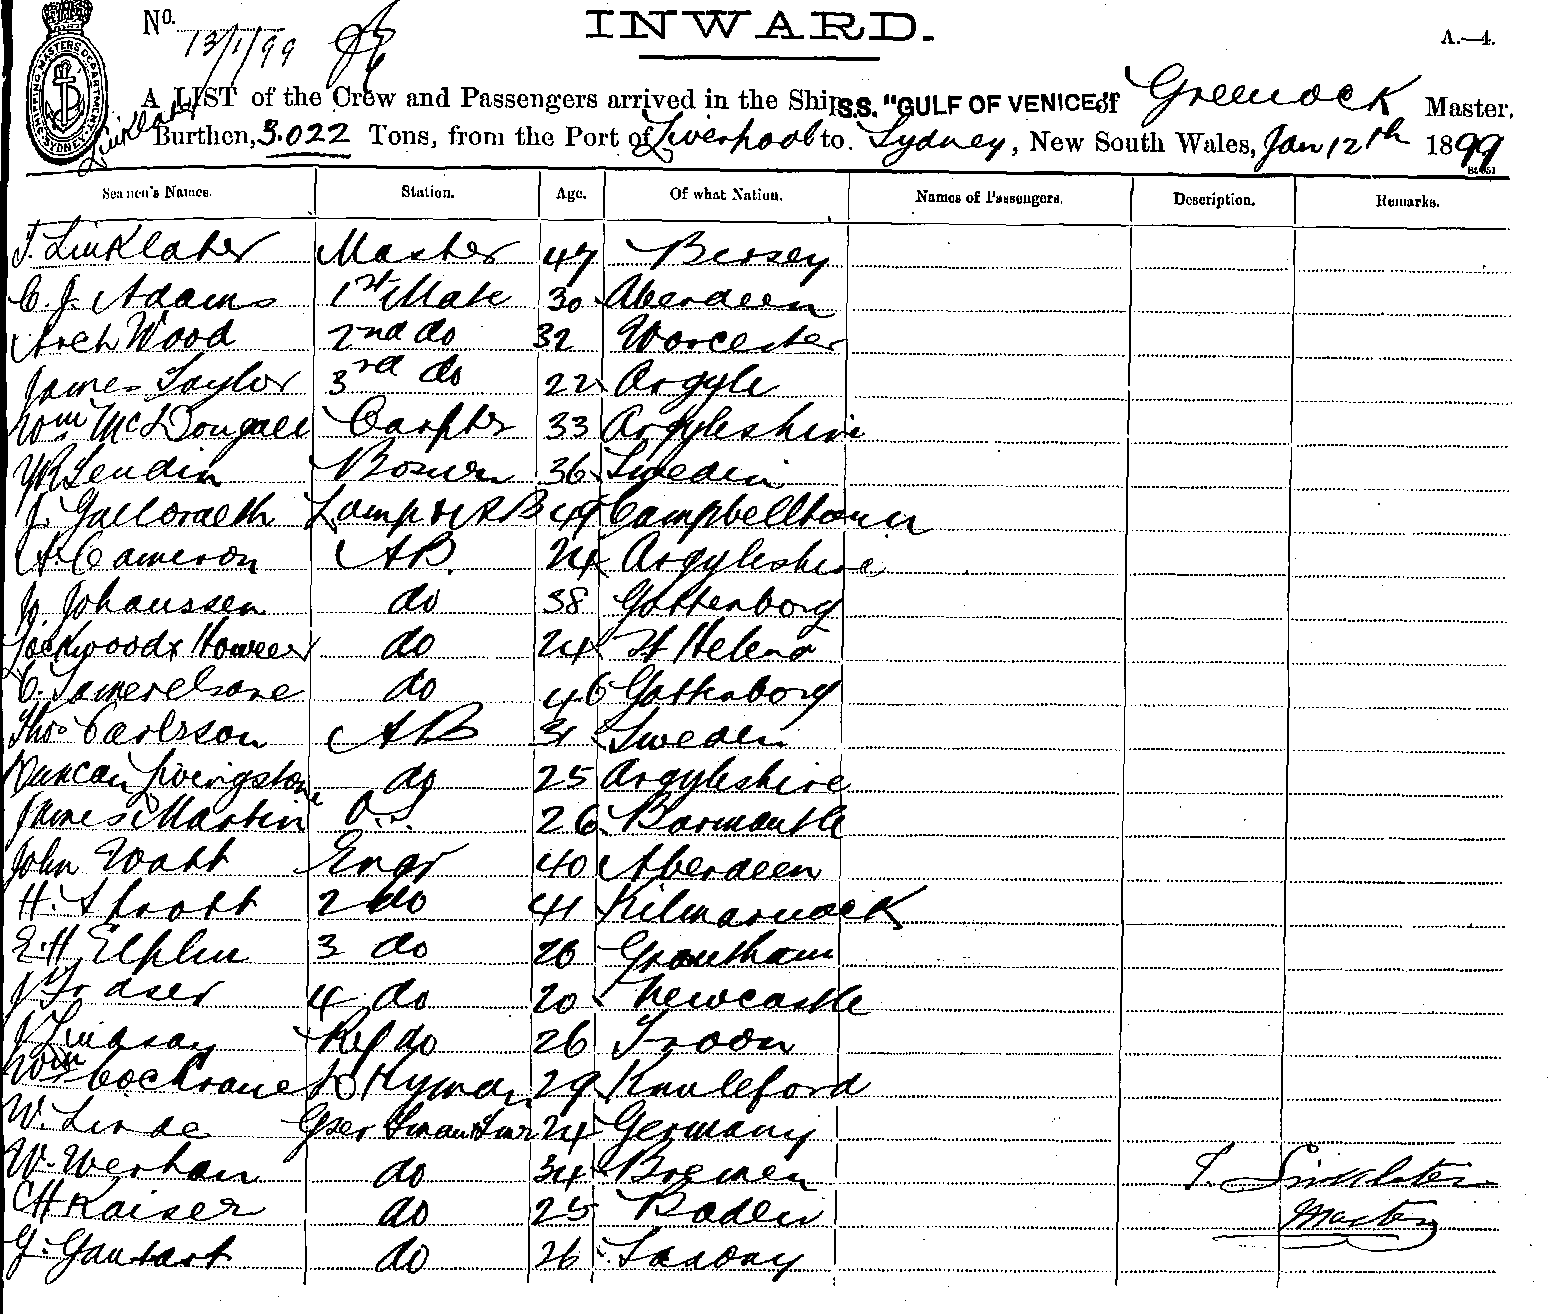 No. 13/1/99
INWARD.
A.—4.
SHIPPING MASTERS DEPARTMENT SYDNEY
A LIST of the Crew and Passengers arrived in the Ship S.S. "GULF OF VENICE" of Greenock Master,
Linklater
Burthen, 3.022 Tons, from the Port of Liverpool to Sydney, New South Wales, Jan 12th 1899
Seamen's Names. Station. Age. Of what Nation. Names of Passengers. Description. Remarks.
T. Linklater Master 47 Birsey
C. J. Adams 1st Mate 30 Aberdeen
Arch Wood 2nd do 32 Worcester
James Taylor 3rd do 22 Argyle
Wm McDougall Carpter 33 Argyleshire
Bosun 36 Sweden
J. Lamp tr AB 49 Campbelltown
A. Cameron AB. 24 Argyleshire
J. Johanssen do 38 Gottenborg
do 24 St Helena
C. do 46 Gottenborg
Thos Carlsson AB 31 Sweden
Duncan Livingstone do 25 Argyleshire
James Martin O.S. 26
John Watt Engr 40 Aberdeen
H. Sprott 2 do 41 Kilmarnock
E. H. Elphin 3 do 26 Grantham
J Fraser 4 do 20 Newcastle
J Lindsay Ref do 26 Troon
Wm Cochrane Dkyman 29
W. Linde 24 Germany
W. Werhan do 34 Bremen
CH Kaiser do 25 Baden
G. do 26 Saxony
T. Linklater
Master